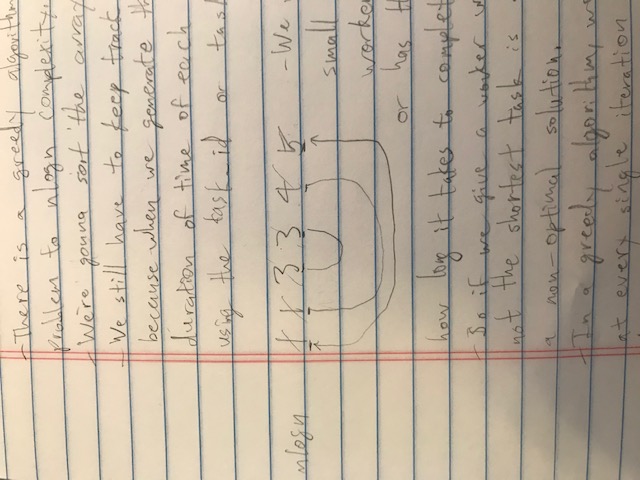 - There is a greedy algorithm
problem to nlogn complexity.
- We're gonna sort the array
- We still have to keep track
because when we generate th
duration of time of each
using the task_id or task
nlogn 1 1 3 3 4 5 - We
small
worke
or has th
how long it takes to complet
- So if we give a worker w
not the shortest task is
a non-optimal solution.
- In a greedy algorithm, we
at every single iteration